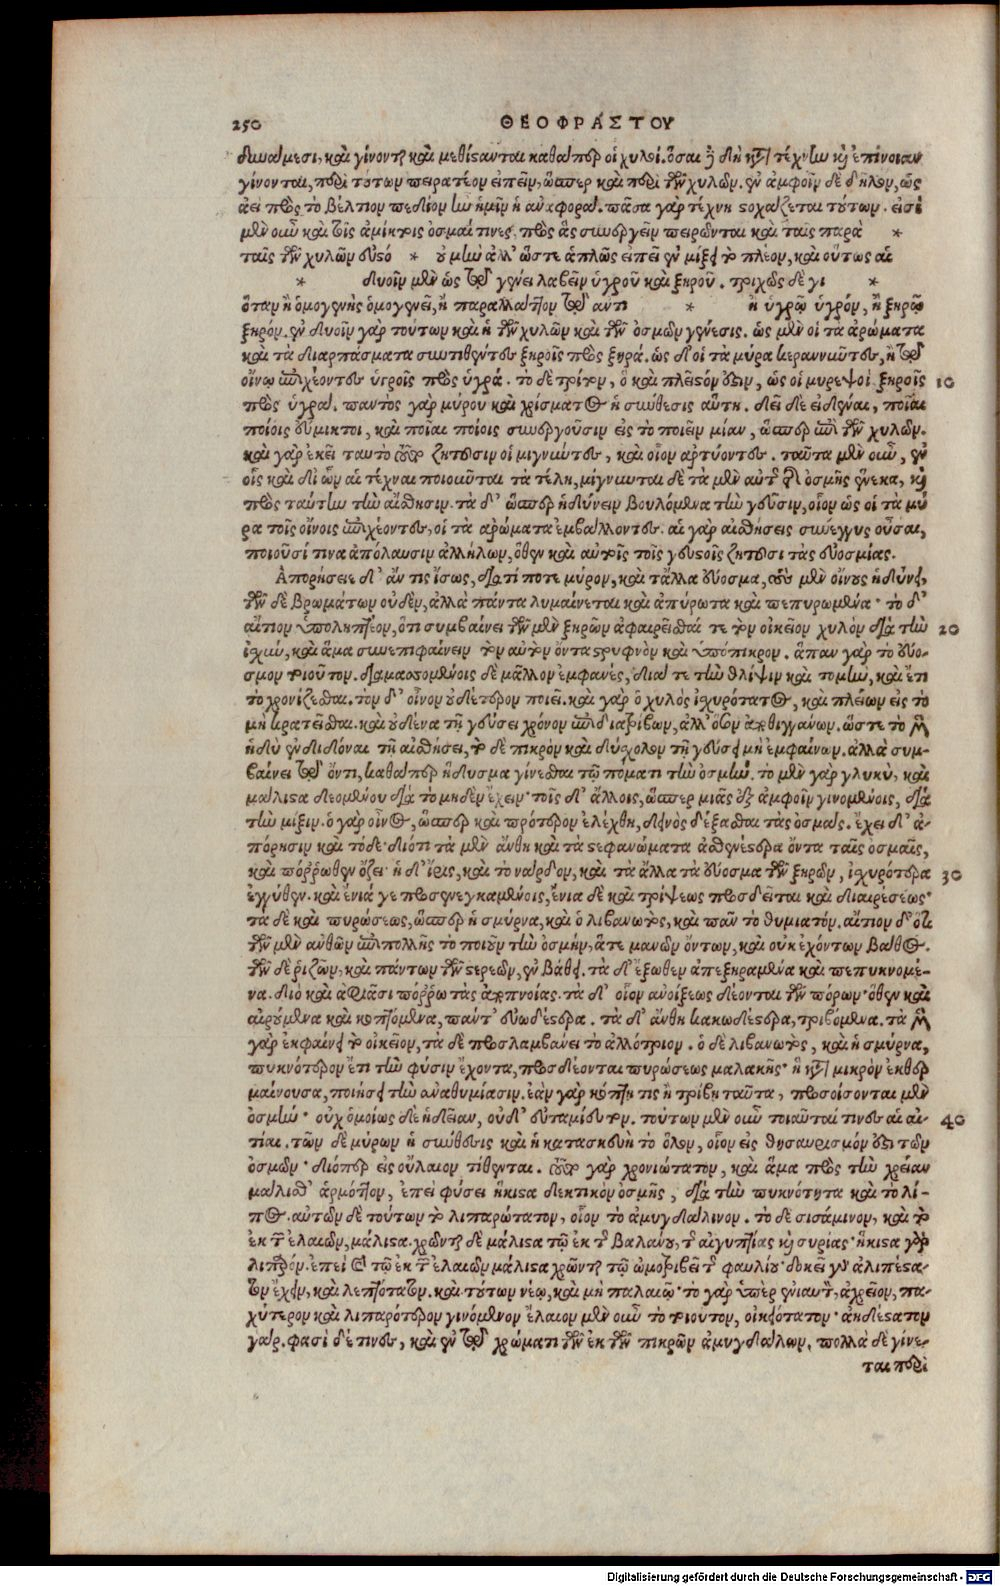 250 ΘΕΟΦΡΑΣΤΟΥ
δυνάμεσι, καὶ γίνονται καὶ μεθίστανται καθάπερ οἱ χυλοί. ὅσαι δὲ δὴ κατὰ τέχνην καὶ ἐπίνοιαν
γίνονται, περὶ τούτων πειρατέον εἰπεῖν, ὥσπερ καὶ περὶ τῶν χυλῶν. ἐν ἀμφοῖν δὲ δῆλον, ὡς
ἀεὶ πρὸς τὸ βέλτιον ἡμῖν ἡ ἀναφορά. πᾶσα γὰρ τέχνη στοχάζεται τούτων. εἰσὶ
μὲν οὖν καὶ τοῖς ἀμίκτοις ὀσμαί τινες, πρὸς ἃς συνεργεῖν πειρῶνται καὶ ταῖς παρὰ *
ταῖς τῶν χυλῶν εὐσο * οὐ μὴν ἀλλ' ὥστε ἁπλῶς εἰπεῖν ἐν μίξει τὸ πλέον, καὶ οὕτως αἱ
* δυοῖν μὲν ὡς τῷ γένει λαβεῖν ὑγροῦ καὶ ξηροῦ. τριχῶς δὲ γι *
ὅταν ἢ ὁμογενὴς ὁμογενεῖ, ἢ παραλλάττον τῷ αντι * ἢ ὑγρῷ ὑγρόν, ἢ ξηρῷ
ξηρόν. ἐν δυοῖν γὰρ τούτων καὶ ἡ τῶν χυλῶν καὶ τῶν ὀσμῶν γένεσις. ὡς μὲν οἱ τὰ ἀρώματα
καὶ τὰ διαπάσματα συντιθέντες ξηροῖς πρὸς ξηρά. ὡς δ' οἱ τὰ μύρα κεραννύντες, ἢ τῷ
οἴνῳ ἐπιχέοντες ὑγροῖς πρὸς ὑγρά. τὸ δὲ τρίτον, ὃ καὶ πλεῖστόν ἐστιν, ὡς οἱ μυρεψοὶ ξηροῖς 10
πρὸς ὑγρά. παντὸς γὰρ μύρου καὶ χρίσματος ἡ σύνθεσις αὕτη. δεῖ δὲ εἰδέναι, ποῖαι
ποίοις εὔμικτοι, καὶ ποῖαι ποίοις συνεργοῦσιν εἰς τὸ ποιεῖν μίαν, ὥσπερ ἐπὶ τῶν χυλῶν.
καὶ γὰρ ἐκεῖ ταυτὸ τοῦτο ζητοῦσιν οἱ μιγνύντες, καὶ οἷον ἀρτύοντες. ταῦτα μὲν οὖν, ἐν
οἷς καὶ δι' ὧν αἱ τέχναι ποιοῦνται τὰ τέλη, μίγνυνται δὲ τὰ μὲν αὐτῆς τῆς ὀσμῆς ἕνεκα, καὶ
πρὸς ταύτην τὴν αἴσθησιν. τὰ δ' ὥσπερ ἡδύνειν βουλόμενα τὴν γεῦσιν, οἷον ὡς οἱ τὰ μύ
ρα τοῖς οἴνοις ἐπιχέοντες, οἱ τὰ ἀρώματα ἐμβάλλοντες. αἱ γὰρ αἰσθήσεις συνέγγυς οὖσαι,
ποιοῦσί τινα ἀπόλαυσιν ἀλλήλων, ὅθεν καὶ αὐτοῖς τοῖς γευστοῖς ζητοῦσι τὰς εὐοσμίας.
Ἀπορήσειε δ' ἄν τις ἴσως, διατί ποτε μύρον, καὶ τἄλλα εὔοσμα, τοὺς μὲν οἴνους ἡδύνει,
τῶν δὲ βρωμάτων οὐδέν, ἀλλὰ πάντα λυμαίνεται καὶ ἀπύρωτα καὶ πεπυρωμένα. τὸ δ'
αἴτιον ὑποληπτέον, ὅτι συμβαίνει τῶν μὲν ξηρῶν ἀφαιρεῖσθαί τε τὸν οἰκεῖον χυλὸν διὰ τὴν 20
ἰσχύν, καὶ ἅμα συνεπιφαίνειν τὸν αὐτὸν ὄντα στρυφνὸν καὶ ὑπόπικρον. ἅπαν γὰρ τὸ εὔο-
σμον τοιοῦτον. διαμασομένοις δὲ μᾶλλον ἐμφανές, διά τε τὴν θλίψιν καὶ τομήν, καὶ ἔτι
τὸ χρονίζεσθαι. τὸν δ' οἶνον οὐδέτερον ποιεῖ. καὶ γὰρ ὁ χυλὸς ἰσχυρότατος, καὶ πλείων εἰς τὸ
μὴ κρατεῖσθαι. καὶ οὐδένα τῇ γεύσει χρόνον ἐπιδιατρίβων, ἀλλ' ὅσον παραθιγγάνων. ὥστε τὸ μὲν
ἡδὺ ἐνδιδόναι τῇ αἰσθήσει, τὸ δὲ πικρὸν καὶ δύσχολον τῇ γεύσει μὴ ἐμφαίνων. ἀλλὰ συμ-
βαίνει τῷ ὄντι, καθάπερ ἥδυσμα γίνεσθαι τῷ πόματι τὴν ὀσμήν. τὸ μὲν γὰρ γλυκύ, καὶ
μάλιστα δεομένου διὰ τὸ μηδὲν ἔχειν· τοῖς δ' ἄλλοις, ὥσπερ μιᾶς ἐξ ἀμφοῖν γινομένοις, διὰ
τὴν μίξιν. ὁ γὰρ οἶνος, ὥσπερ καὶ πρότερον ἐλέχθη, δεινὸς δέξασθαι τὰς ὀσμάς. ἔχει δ' ἀ-
πόρησιν καὶ τόδε· διότι τὰ μὲν ἄνθη καὶ τὰ στεφανώματα ἀσθενέστερα ὄντα ταῖς ὀσμαῖς,
καὶ πόῤῥωθεν ὄζει· ἡ δ' ἶρις, καὶ τὸ νάρδον, καὶ τὰ ἄλλα τὰ εὔοσμα τῶν ξηρῶν, ἰσχυρότερα 30
ἐγγύθεν. καὶ ἔνιά γε προσενεγκαμένοις, ἔνια δὲ καὶ τρίψεως προσδεῖται καὶ διαιρέσεως·
τὰ δὲ καὶ πυρώσεως, ὥσπερ ἡ σμύρνα, καὶ ὁ λιβανωτός, καὶ πᾶν τὸ θυμιατόν. αἴτιον δ' ὅτι
τῶν μὲν ἀνθῶν ἐπιπολῆς τὸ ποιοῦν τὴν ὀσμήν, ἅτε μανῶν ὄντων, καὶ οὐκ ἐχόντων βάθος.
τῶν δὲ ῥιζῶν, καὶ πάντων τῶν στερεῶν, ἐν βάθει. τὰ δ' ἔξωθεν ἀπεξηραμένα καὶ πεπυκνομέ-
να. διὸ καὶ ἀφιᾶσι πόῤῥω τὰς ἀποπνοίας. τὰ δ' οἷον ἀνοίξεως δέονται τῶν πόρων· ὅθεν καὶ
αἰρόμενα καὶ κοπτόμενα, πάντ' εὐωδέστερα. τὰ δ' ἄνθη κακωδέστερα, τριβόμενα. τὰ μὲν
γὰρ ἐκφαίνει τὸ οἰκεῖον, τὰ δὲ προσλαμβάνει τὸ ἀλλότριον. ὁ δὲ λιβανωτός, καὶ ἡ σμύρνα,
πυκνότερον ἔτι τὴν φύσιν ἔχοντα, προσδέονται πυρώσεως μαλακῆς· ἣ κατὰ μικρὸν ἐκθερ
μαίνουσα, ποιήσει τὴν ἀναθυμίασιν. ἐὰν γὰρ κόπτῃ τις ἢ τρίβῃ ταῦτα, προσοίσονται μὲν
ὀσμήν· οὐχ ὁμοίως δὲ ἡδεῖαν, οὐδ' εὐταμίευτον. τούτων μὲν οὖν τοιαῦταί τινες αἱ αἰ- 40
τίαι. τῶν δὲ μύρων ἡ σύνθεσις καὶ ἡ κατασκευὴ τὸ ὅλον, οἷον εἰς θησαυρισμόν ἐστι τῶν
ὀσμῶν· διόπερ εἰς οὔλαιον τίθενται. τοῦτο γὰρ χρονιώτατον, καὶ ἅμα πρὸς τὴν χρείαν
μάλισθ' ἁρμόττον, ἐπεὶ φύσει ἥκιστα δεκτικὸν ὀσμῆς, διὰ τὴν πυκνότητα καὶ τὸ λί-
πος. αὐτῶν δὲ τούτων τὸ λιπαρώτατον, οἷον τὸ ἀμυγδάλινον. τὸ δὲ σισάμινον, καὶ τὸ
ἐκ τῶν ἐλαιῶν, μάλιστα. χρῶνται δὲ μάλιστα τῷ ἐκ τῆς βαλάνου, τῆς αἰγυπτίας καὶ συρίας· ἥκιστα γὰρ
λιπαρόν. ἐπεὶ καὶ τῷ ἐκ τῶν ἐλαιῶν μάλιστα χρῶνται τῷ ὠμοτριβεῖ τῆς φαυλίου· δοκεῖ γὰρ ἀλιπέστα-
τον ἔχειν, καὶ λεπτότατον. καὶ τούτων νέῳ, καὶ μὴ παλαιῷ· τὸ γὰρ ὑπὲρ ἐνιαυτόν, ἀχρεῖον, πα-
χύτερον καὶ λιπαρότερον γινόμενον ἔλαιον μὲν οὖν τὸ τοιοῦτον, οἰκειότατον· ἀηδέστατον
γάρ. φασὶ δέ τινες, καὶ ἐν τῷ χρώματι τῶν ἐκ τῶν πικρῶν ἀμυγδάλων. πολλὰ δὲ γίνε-
ται περὶ
Digitalisierung gefördert durch die Deutsche Forschungsgemeinschaft - DFG